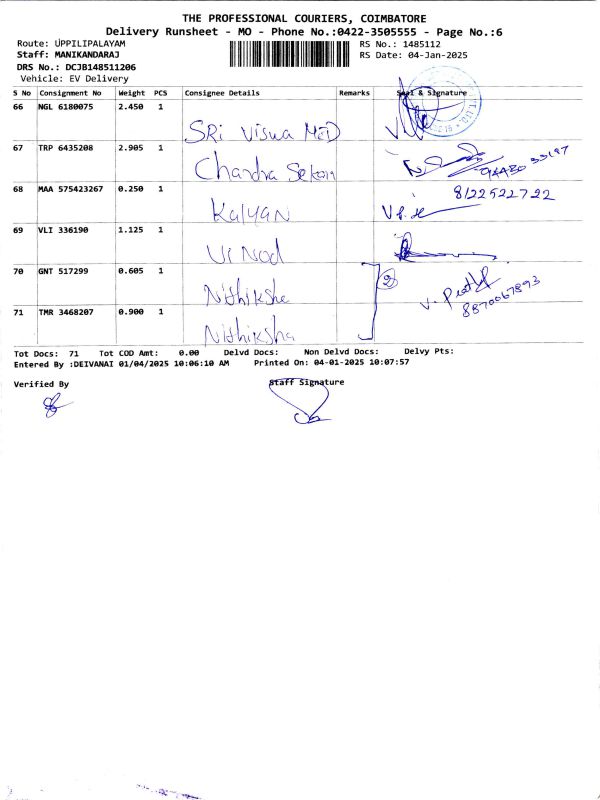 THE PROFESSIONAL COURIERS, COIMBATORE
Delivery Runsheet - MO - Phone No.:0422-3505555 - Page No.:6
Route: UPPILIPALAYAM
RS No.: 1485112
Staff: MANIKANDARAJ
RS Date: 04-Jan-2025
DRS No.: DCJB148511206
Vehicle: EV Delivery
S No Consignment No Weight PCS Consignee Details Remarks Seal & Signature
66 NGL 6180075 2.450 1 SRi Viswa MED
67 TRP 6435208 2.905 1 Chandra Sekar
68 MAA 575423267 0.250 1 Kalyan 8122522722
69 VLI 336190 1.125 1 Vinod
70 GNT 517299 0.605 1 Nithiksha 2
8870067893
71 TMR 3468207 0.900 1 Nithiksha
Tot Docs: 71 Tot COD Amt: 0.00 Delvd Docs: Non Delvd Docs: Delvy Pts:
Entered By :DEIVANAI 01/04/2025 10:06:10 AM Printed On: 04-01-2025 10:07:57
Verified By Staff Signature